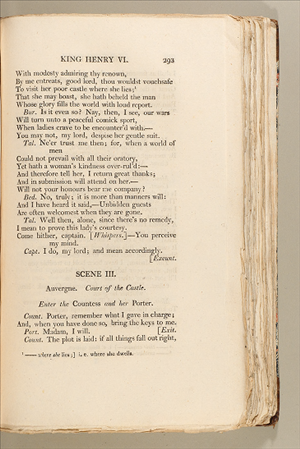 KING HENRY VI. 293
With modesty admiring thy renown,
By me entreats, good lord, thou wouldst vouchsafe
To visit her poor castle where she lies;¹
That she may boast, she hath beheld the man
Whose glory fills the world with loud report.
Bur. Is it even so? Nay, then, I see, our wars
Will turn unto a peaceful comick sport,
When ladies crave to be encounter'd with.—
You may not, my lord, despise her gentle suit.
Tal. Ne'er trust me then; for, when a world of
men
Could not prevail with all their oratory,
Yet hath a woman's kindness over-rul'd:—
And therefore tell her, I return great thanks;
And in submission will attend on her.—
Will not your honours bear me company?
Bed. No, truly; it is more than manners will:
And I have heard it said,—Unbidden guests
Are often welcomest when they are gone.
Tal. Well then, alone, since there's no remedy,
I mean to prove this lady's courtesy.
Come hither, captain. [Whispers.]—You perceive
my mind.
Capt. I do, my lord; and mean accordingly.
[Exeunt.
SCENE III.
Auvergne. Court of the Castle.
Enter the Countess and her Porter.
Count. Porter, remember what I gave in charge;
And, when you have done so, bring the keys to me.
Port. Madam, I will. [Exit.
Count. The plot is laid: if all things fall out right,
¹ —— where she lies;] i. e. where she dwells.